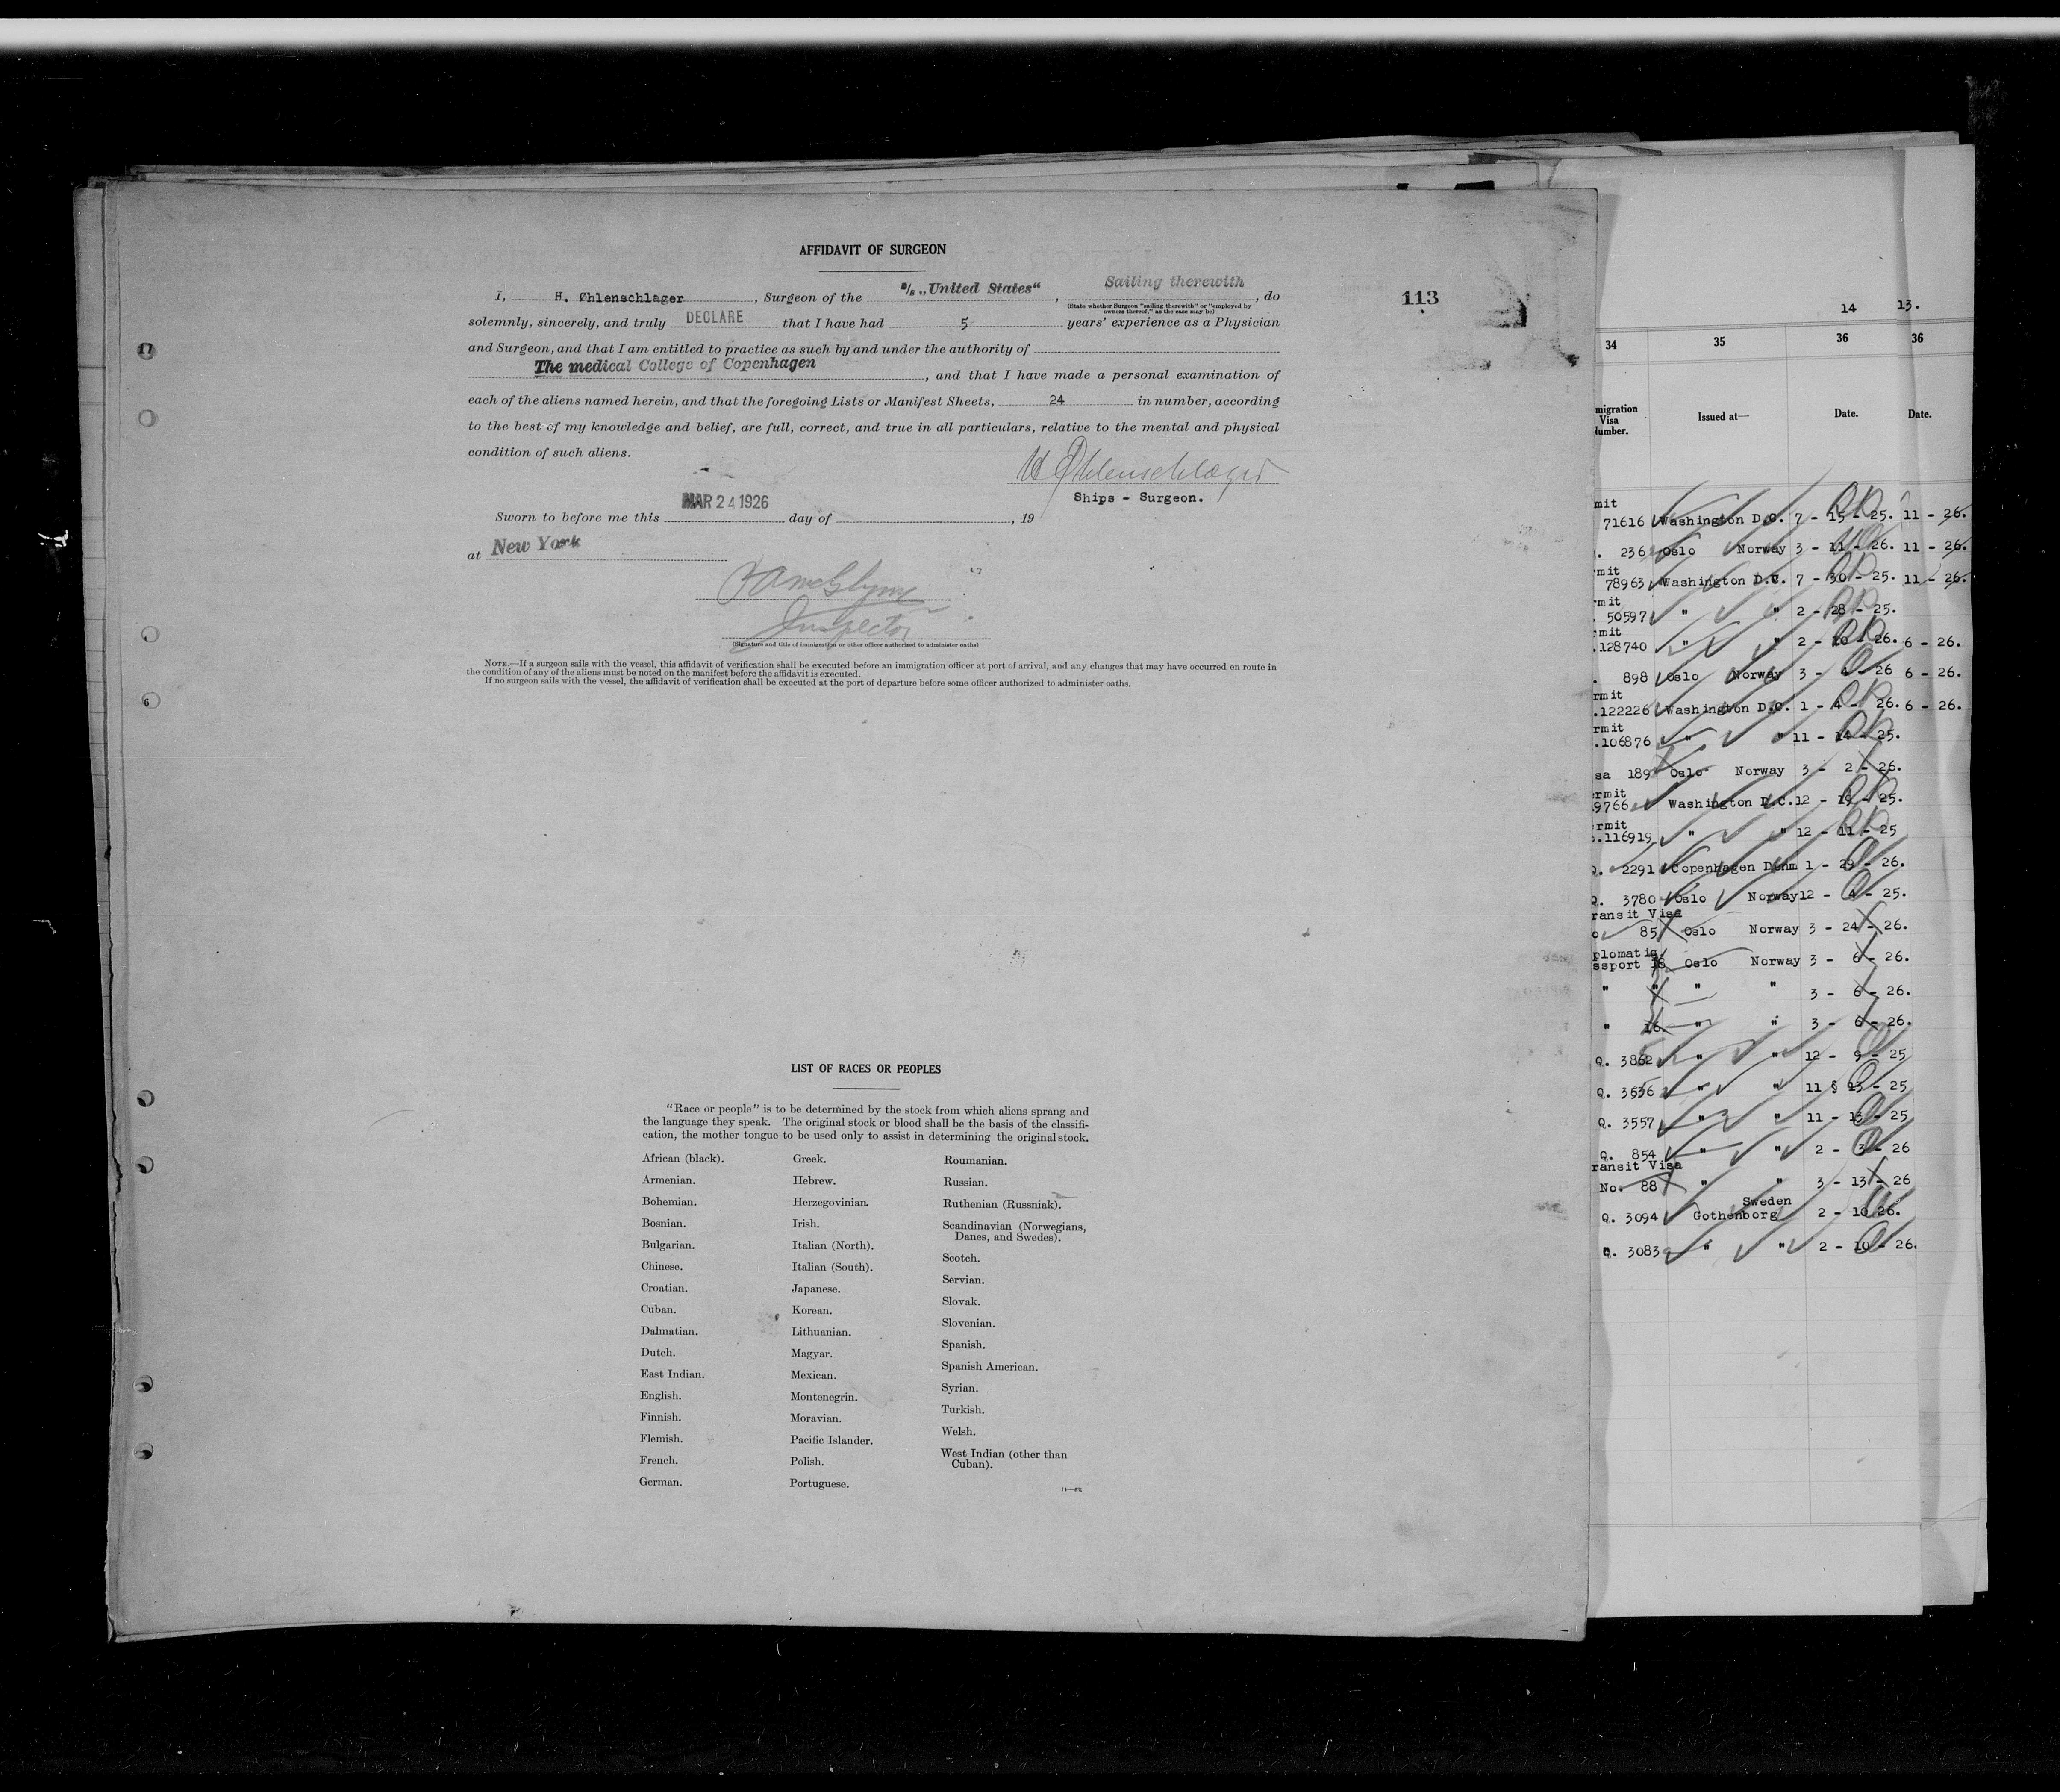 AFFIDAVIT OF SURGEON
I, H. Øhlenschlager, Surgeon of the S/S „United States“, Sailing therewith, do
(State whether Surgeon "sailing therewith" or "employed by
owners thereof," as the case may be)
113
solemnly, sincerely, and truly DECLARE that I have had 5 years' experience as a Physician
and Surgeon, and that I am entitled to practice as such by and under the authority of
The medical College of Copenhagen, and that I have made a personal examination of
each of the aliens named herein, and that the foregoing Lists or Manifest Sheets, 24 in number, according
to the best of my knowledge and belief, are full, correct, and true in all particulars, relative to the mental and physical
condition of such aliens.
H Øhlenschlæger
Ships - Surgeon.
MAR 24 1926
Sworn to before me this day of , 19
at New York
Inspector
(Signature and title of immigration or other officer authorized to administer oaths)
NOTE.—If a surgeon sails with the vessel, this affidavit of verification shall be executed before an immigration officer at port of arrival, and any changes that may have occurred en route in
the condition of any of the aliens must be noted on the manifest before the affidavit is executed.
If no surgeon sails with the vessel, the affidavit of verification shall be executed at the port of departure before some officer authorized to administer oaths.
17
6
LIST OF RACES OR PEOPLES
"Race or people" is to be determined by the stock from which aliens sprang and
the language they speak. The original stock or blood shall be the basis of the classifi-
cation, the mother tongue to be used only to assist in determining the original stock.
African (black).
Armenian.
Bohemian.
Bosnian.
Bulgarian.
Chinese.
Croatian.
Cuban.
Dalmatian.
Dutch.
East Indian.
English.
Finnish.
Flemish.
French.
German.
Greek.
Hebrew.
Herzegovinian.
Irish.
Italian (North).
Italian (South).
Japanese.
Korean.
Lithuanian.
Magyar.
Mexican.
Montenegrin.
Moravian.
Pacific Islander.
Polish.
Portuguese.
Roumanian.
Russian.
Ruthenian (Russniak).
Scandinavian (Norwegians,
Danes, and Swedes).
Scotch.
Servian.
Slovak.
Slovenian.
Spanish.
Spanish American.
Syrian.
Turkish.
Welsh.
West Indian (other than
Cuban).
14 13.
34 35 36 36
migration
Visa
Number.
Issued at— Date. Date.
mit
71616 Washington D.C. 7 - 15 - 25. 11 - 26.
. 236 Oslo Norway 3 - 11 - 26. 11 - 26.
mit
78963 Washington D.C. 7 - 30 - 25. 11 - 26.
mit
50597 " " 2 - 28 - 25.
mit
.128740 " " 2 - 10 - 26. 6 - 26.
. 898 Oslo Norway 3 - 4 - 26 6 - 26.
rmit
.122226 Washington D.C. 1 - 4 - 26. 6 - 26.
rmit
.106876 " " 11 - 14 - 25.
sa 189 Oslo Norway 3 - 2 - 26.
ermit
9766 Washington D.C. 12 - 19 - 25.
rmit
.116919 " " 12 - 11 - 25
Q. 2291 Copenhagen Denm 1 - 29 - 26.
Q. 3780 Oslo Norway 12 - 4 - 25.
ransit Visa
o 85 Oslo Norway 3 - 24 - 26.
plomatic
ssport 18 Oslo Norway 3 - 6 - 26.
" " " " 3 - 6 - 26.
" 16. " " 3 - 6 - 26.
Q. 3862 " " 12 - 9 - 25
Q. 3536 " " 11 § 13 - 25
Q. 3557 " " 11 - 13 - 25
Q. 854 " " 2 - 3 - 26
ransit Visa
No. 88 " " 3 - 13 - 26
Sweden
Q. 3094 Gothenborg 2 - 10 26.
Q. 3083 " " 2 - 10 - 26.